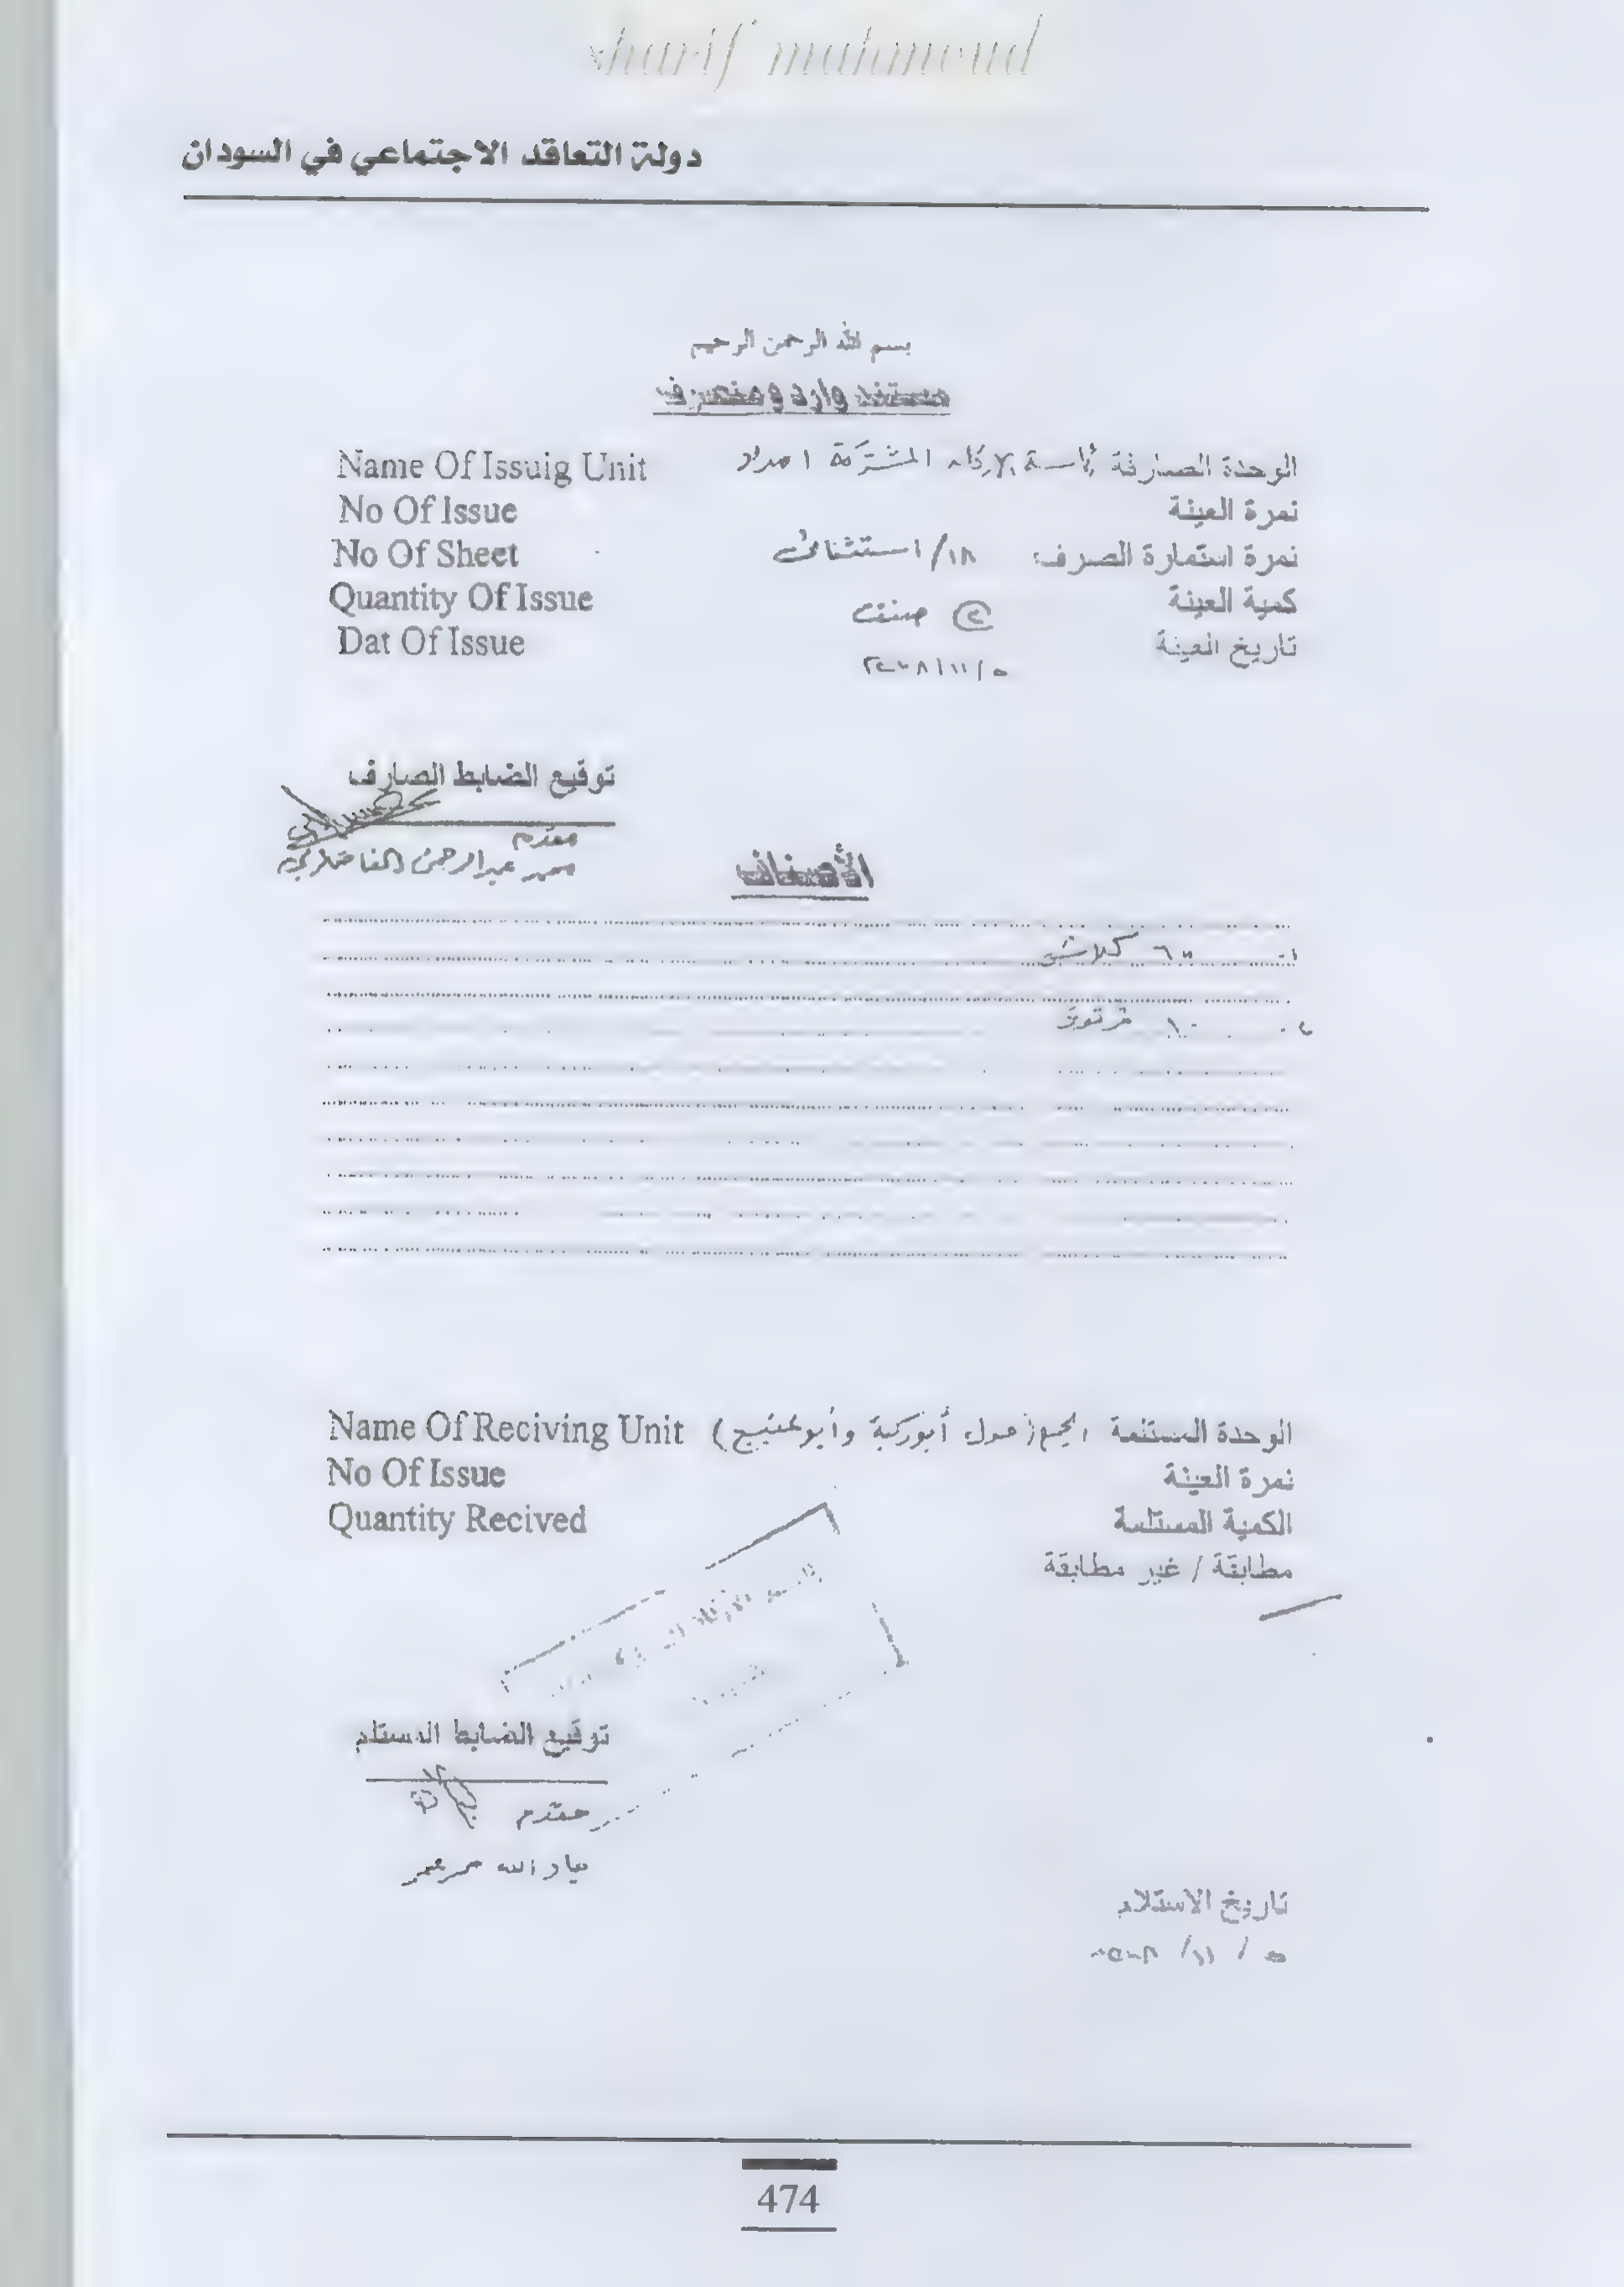 sharif mahmoud
دولة التعاقد الاجتماعي في السودان
بسم الله الرحمن الرحيم
مستند وارد ومنصرف
Name Of Issuig Unit الوحدة الصارفة رئاسة الاركان المشتركة امداد
No Of Issue نمرة العينة
No Of Sheet نمرة استمارة الصرف: ١٨/ استثنائى
Quantity Of Issue كمية العينة ② صنف
Dat Of Issue تاريخ العينة ٥/١١/٢٠٠٨
توقيع الضابط الصارف
مقدم
عبدالرحمن
الأصناف
١- ٦٠ كلاش
٢- ١٠ قرنوف
Name Of Reciving Unit الوحدة المستلمة أبوركبة
No Of Issue نمرة العينة
Quantity Recived الكمية المستلمة
مطابقة / غير مطابقة
توقيع الضابط المستلم
مقدم
الله عمر
تاريخ الاستلام
٥ / ١١/ ٢٠٠٨
474